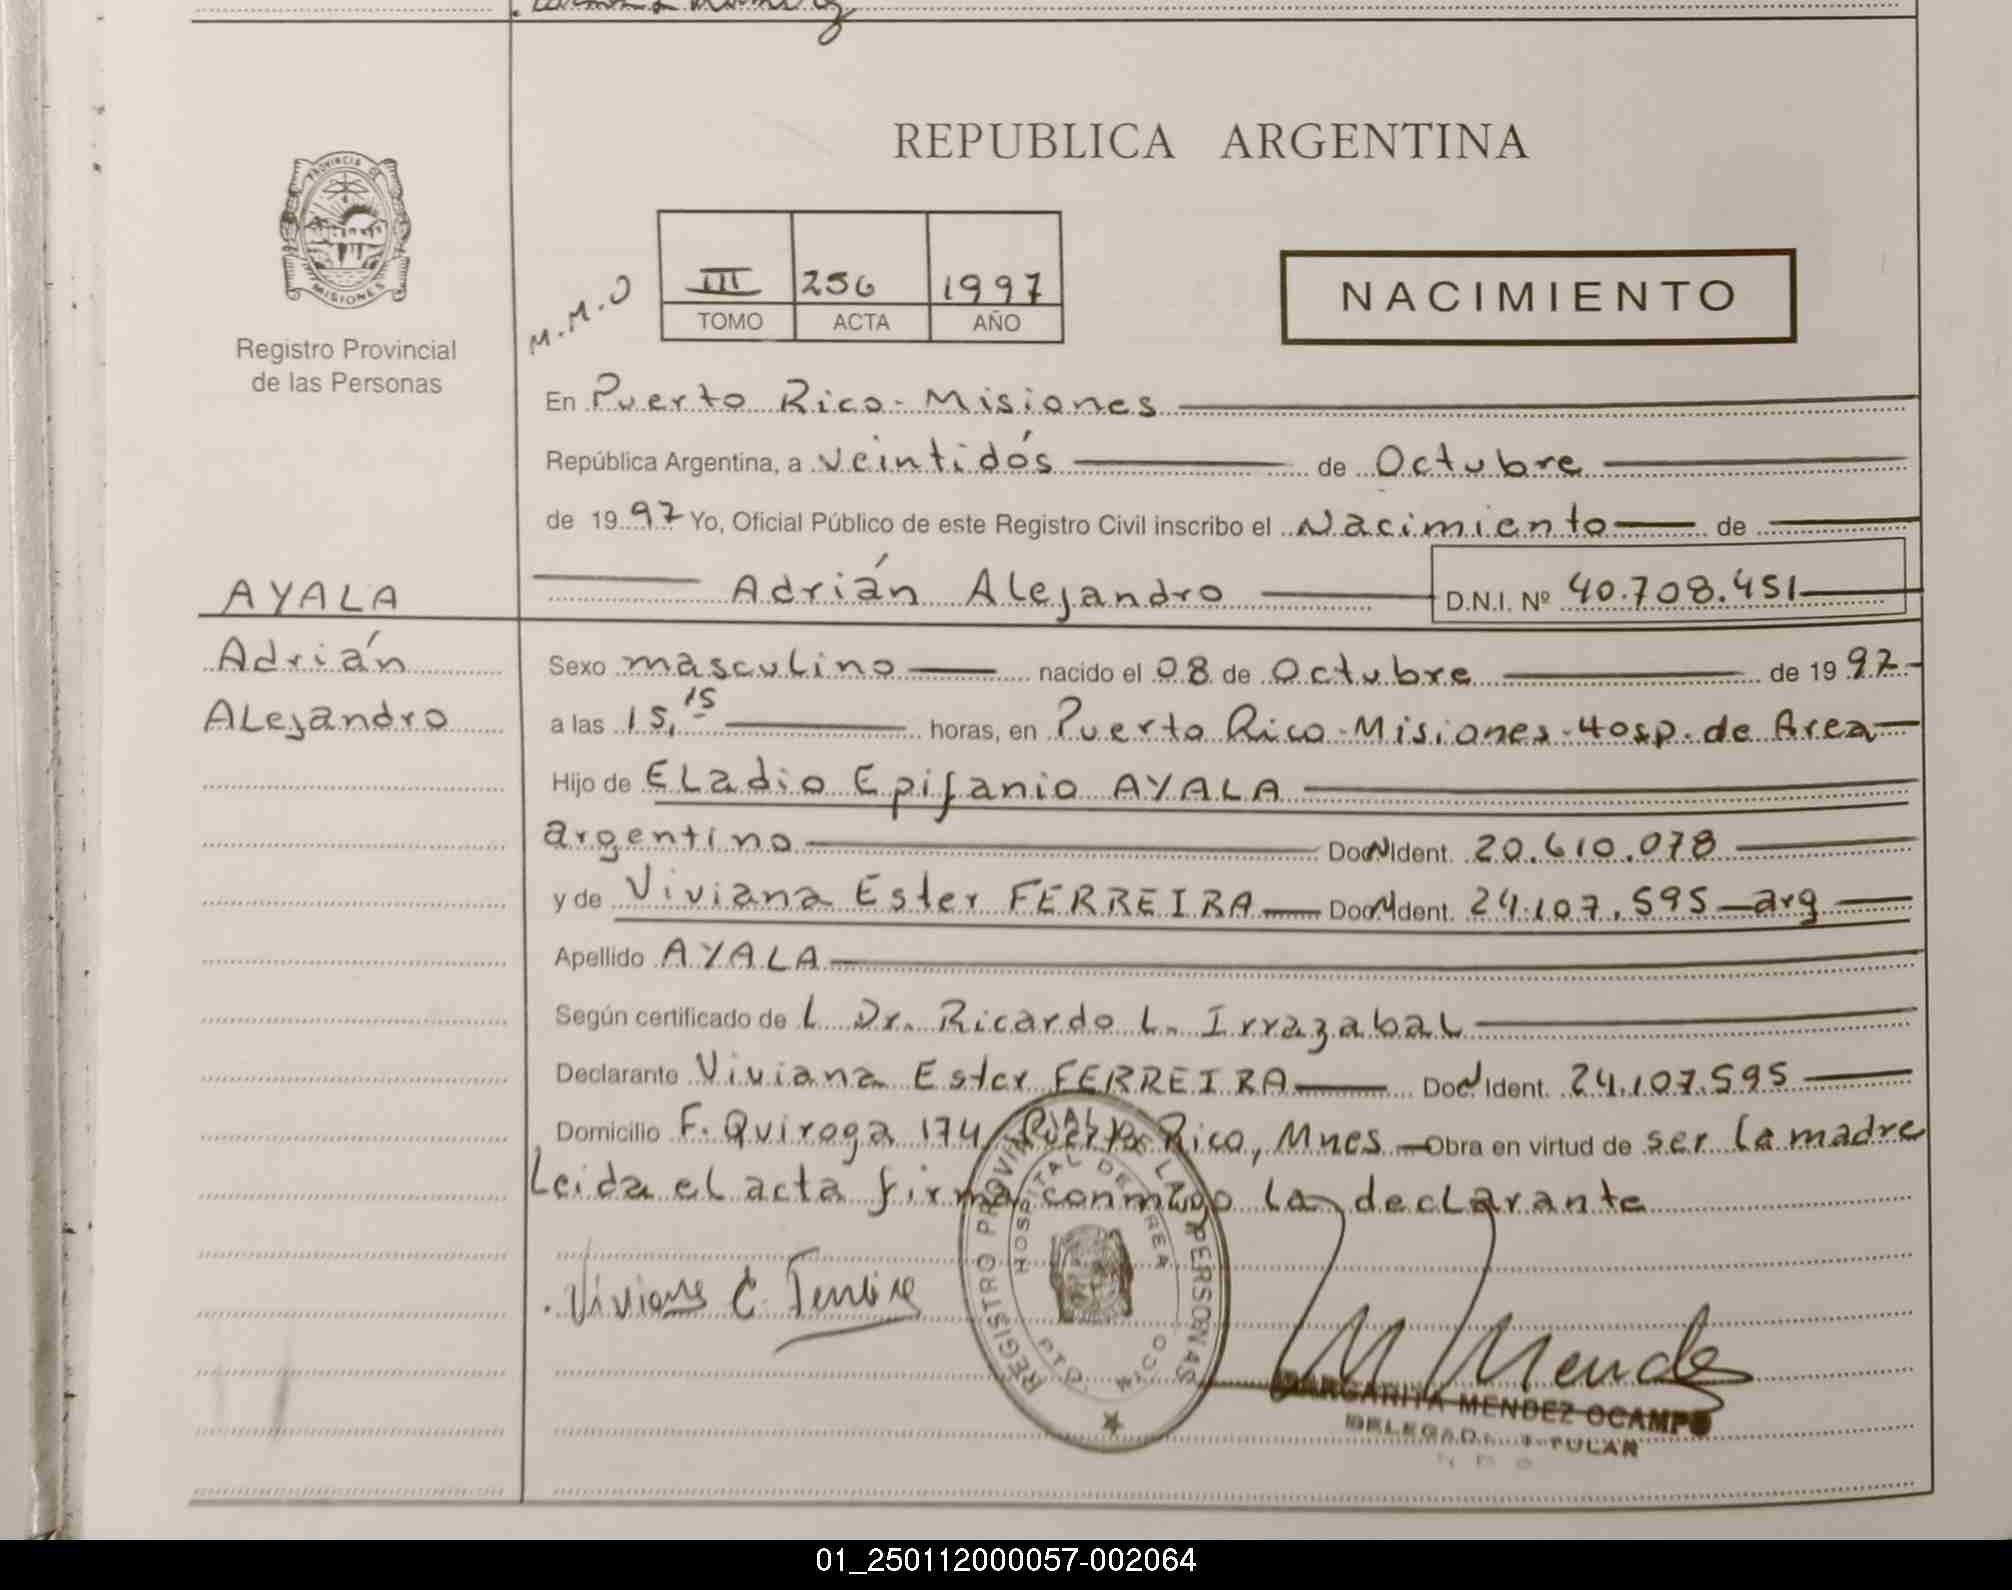 REPUBLICA ARGENTINA
PROVINCIA DE
MISIONES
Registro Provincial
de las Personas
M.M.O
III 256 1997
TOMO ACTA AÑO
NACIMIENTO
En Puerto Rico - Misiones
República Argentina, a veintidós de Octubre
de 1997 Yo, Oficial Público de este Registro Civil inscribo el Nacimiento de
AYALA
Adrián Alejandro D.N.I. Nº 40.708.451
Adrián
Sexo masculino nacido el 08 de Octubre de 1997-
Alejandro
a las 15,15 horas, en Puerto Rico-Misiones-Hosp. de Area
Hijo de Eladio Epifanio AYALA
argentino Doc N Ident. 20.610.078
y de Viviana Ester FERREIRA Doc N Ident. 24.107.595 - arg
Apellido AYALA
Según certificado de L Dr. Ricardo L. Irrazabal
Declarante Viviana Ester FERREIRA Doc N Ident. 24.107.595
Domicilio F. Quiroga 174 Puerto Rico, Mnes - Obra en virtud de ser la madre
Leida el acta firma conmigo la declarante
Viviana E. Ferreira
REGISTRO PROVINCIAL DE LAS PERSONAS
HOSPITAL DE AREA
PTO. RICO
M Mendez
MARGARITA MENDEZ OCAMPO
DELEGADA TITULAR
01_250112000057-002064